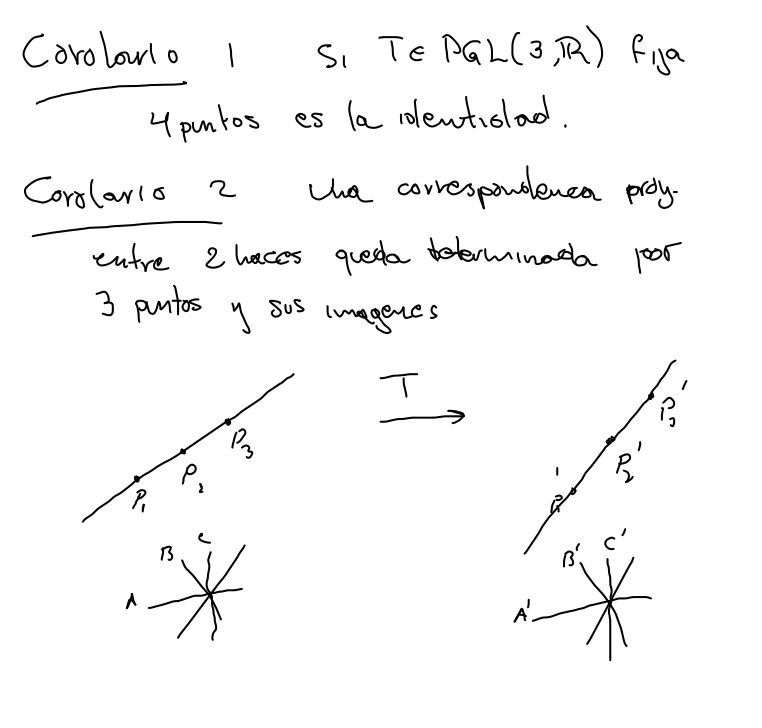 Corolario 1 Si T∈ PGL(3,ℝ) fija
4 puntos es la identidad.
Corolario 2 Una correspondencia proy.
entre 2 haces queda determinada por
3 puntos y sus imagenes
T
P₁ P₂ P₃
P₁' P₂' P₃'
A B C
A' B' C'